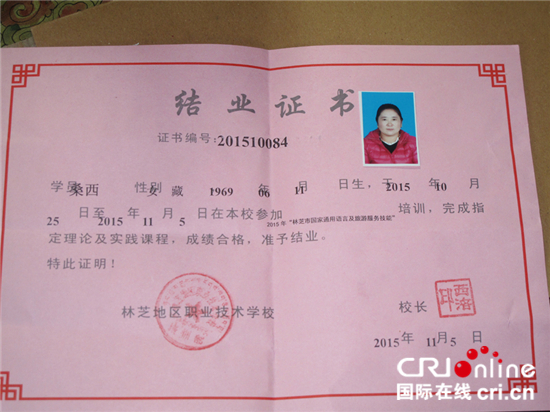 结业证书
证书编号:201510084
学员 桑西 性别 女 藏 1969 06 月 11 日生，于 2015 年 10 月
25 日至 2015 年 11 月 5 日在本校参加 2015年“林芝市国家通用语言及旅游服务技能” 培训，完成指
定理论及实践课程，成绩合格，准予结业。
特此证明！
林芝地区职业技术学校
校长
2015年 11月 5 日
CRIonline
国际在线 cri.cn